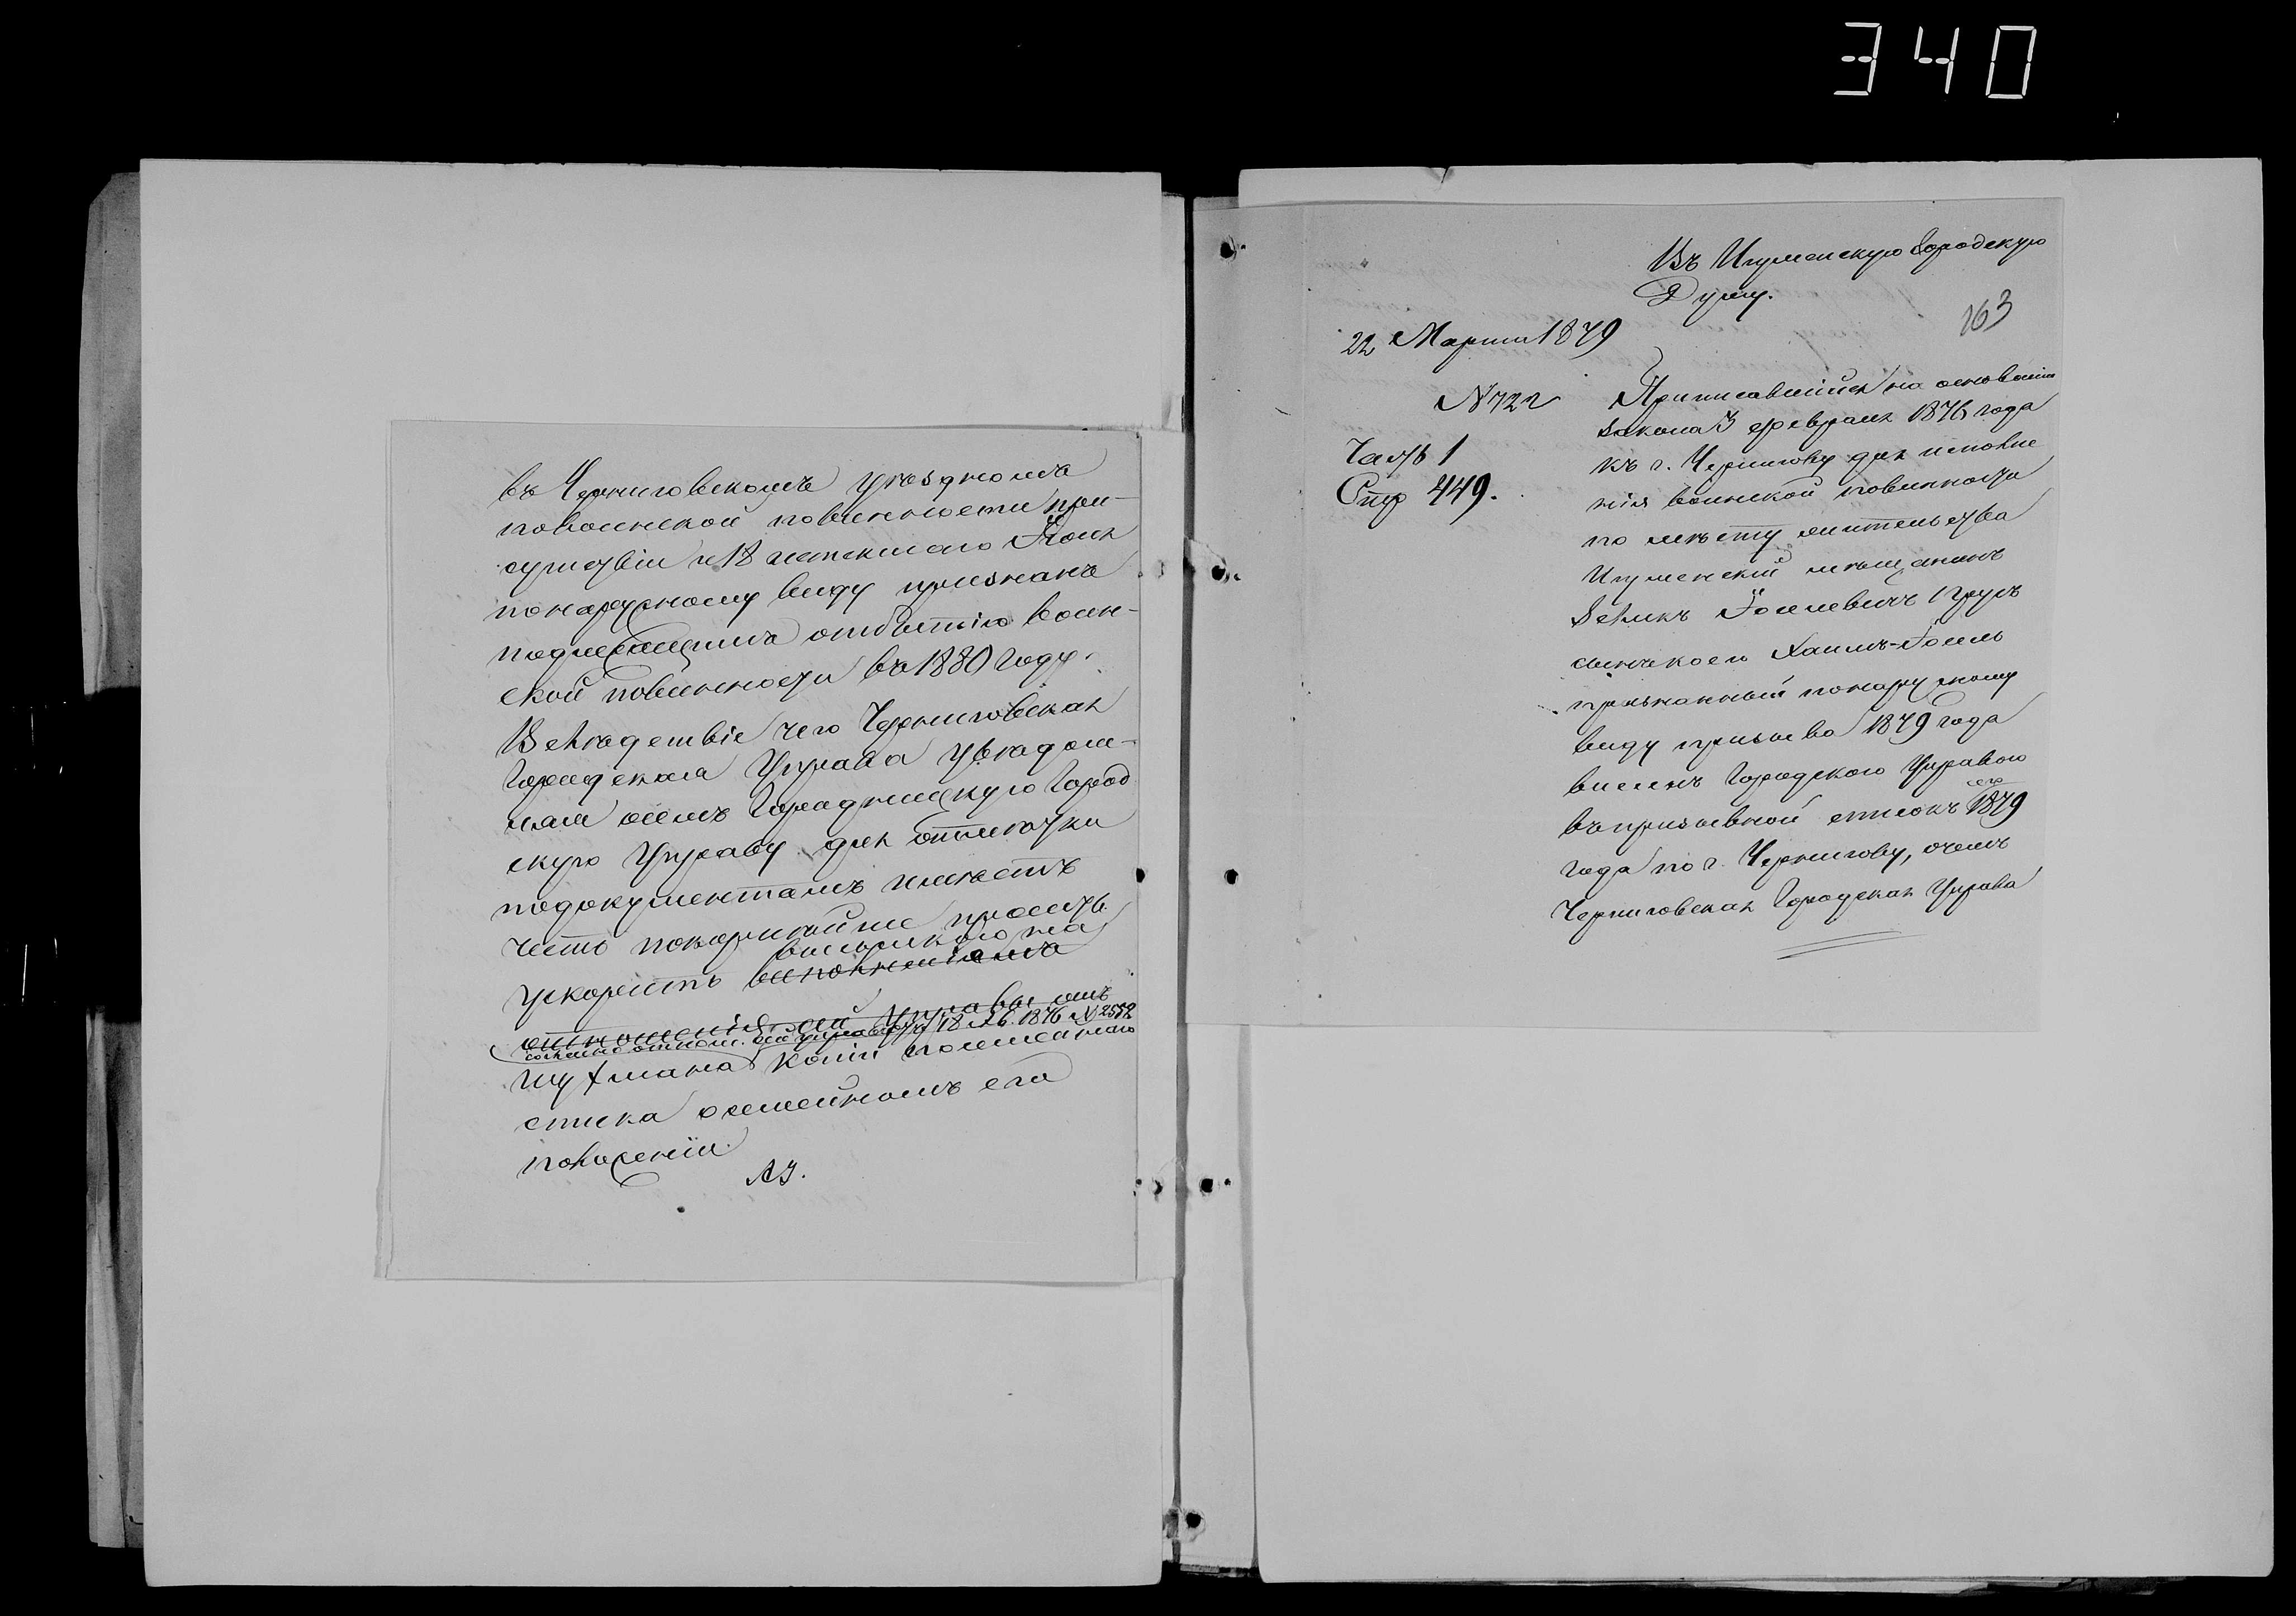 340
въ Черниговскомъ уѣздномъ
повоинской повинности при-
сутствіи и 18 истекшаго Іюня
понаружному виду признанъ
подлежащимъ отбытію воин-
ской повинности въ 1880 году.
Вслѣдствіе чего Черниговская
Городская Управа увѣдом-
ляя осемъ Городнискую Город
скую Управу для отмѣтки
подокументамъ имѣетъ
честь покорнѣйше просить
высылкою на
ускорить исполненіемъ
отношенія сей Управы отъ
согласно отнош. сей управы 18 1876 N 2552
Шухмана копіи посемейнаго
списка осемейномъ его
положеніи.
АЗ.
Въ Игуменскую Городскую
Думу.
163
22 Марта 1879
N 722
Часть 1
Стр 449.
Приписавшійся на основаніи
закона 3 февраля 1876 года
къ г. Чернигову для исполне
нія воинской повинности
по мѣсту жительства
Игуменскій мѣщанинъ
Зеликъ Іоселевичъ
Хаимъ-Іосель
признанный понаружному
виду призыва 1879 года
внесенъ Городскою Управою
въ призывной списокъ 1879
его
года по г. Чернигову, очемъ
Черниговская Городская Управа